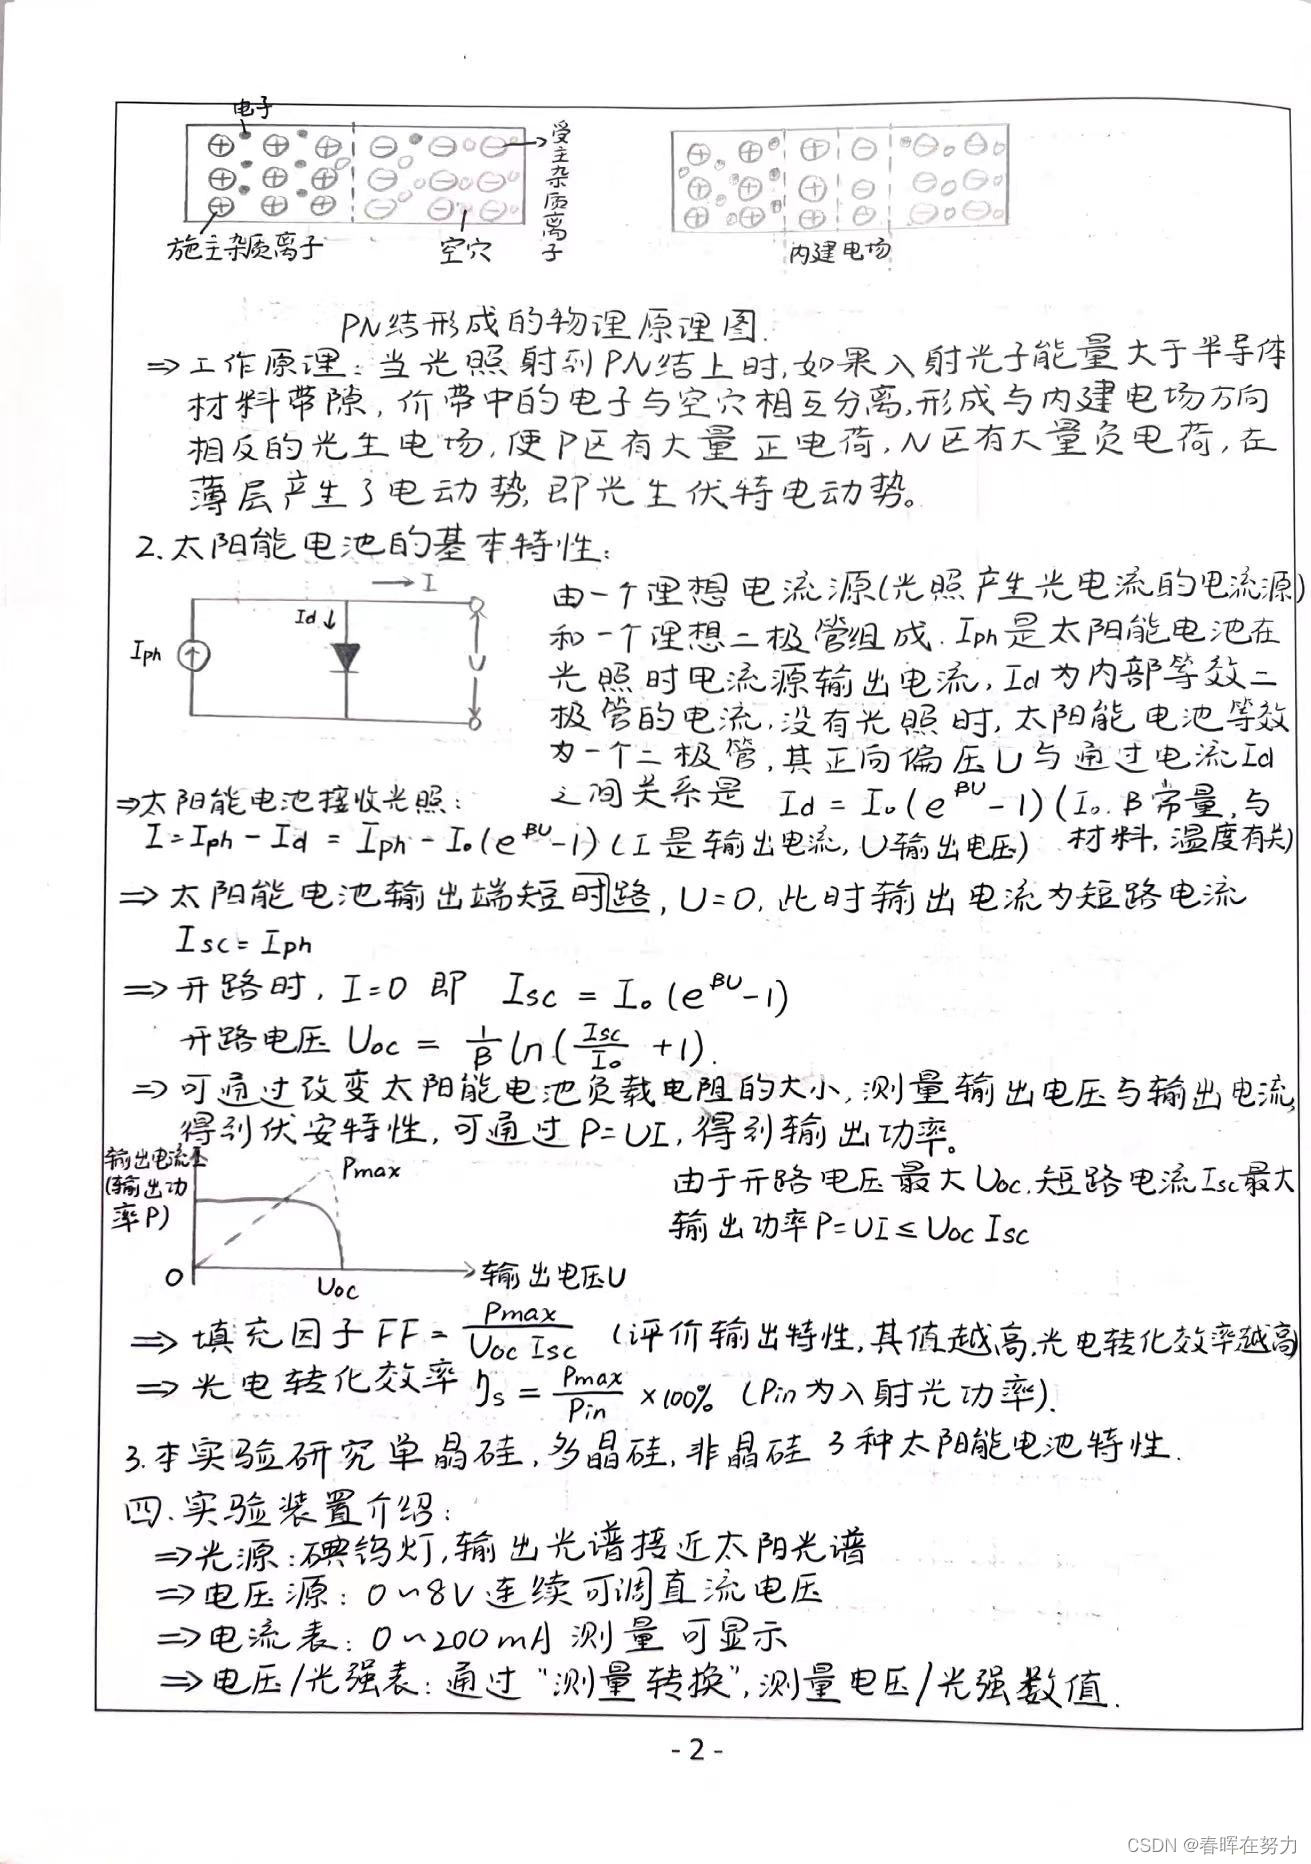 电子
受主杂质离子
施主杂质离子
空穴
内建电场
PN结形成的物理原理图.
⇒工作原理:当光照射到PN结上时,如果入射光子能量大于半导体
材料带隙,价带中的电子与空穴相互分离,形成与内建电场方向
相反的光生电场,使P区有大量正电荷,N区有大量负电荷,在
薄层产生了电动势,即光生伏特电动势。
2.太阳能电池的基本特性:
→I
Id↓
Iph
U
由一个理想电流源(光照产生光电流的电流源)
和一个理想二极管组成.Iph是太阳能电池在
光照时电流源输出电流,Id为内部等效二
极管的电流,没有光照时,太阳能电池等效
为一个二极管,其正向偏压U与通过电流Id
之间关系是 Id=I₀(e^βU-1)(I₀.β常量,与
材料,温度有关)
⇒太阳能电池接收光照:
I=Iph-Id=Iph-I₀(e^βU-1)(I是输出电流,U输出电压)
⇒太阳能电池输出端短时路,U=0,此时输出电流为短路电流
Isc=Iph
⇒开路时,I=0 即 Isc=I₀(e^βU-1)
开路电压Uoc=1/β ln(Isc/I₀+1).
⇒可通过改变太阳能电池负载电阻的大小,测量输出电压与输出电流,
得到伏安特性,可通过P=UI,得到输出功率。
输出电流I
(输出功
率P)
Pmax
O
Uoc
输出电压U
由于开路电压最大Uoc.短路电流Isc最大
输出功率P=UI≤Uoc Isc
⇒填充因子FF=Pmax/Uoc Isc (评价输出特性,其值越高,光电转化效率越高)
⇒光电转化效率ηs=Pmax/Pin×100% (Pin为入射光功率).
3.本实验研究单晶硅,多晶硅,非晶硅3种太阳能电池特性.
四.实验装置介绍:
⇒光源:碘钨灯,输出光谱接近太阳光谱
⇒电压源:0~8V连续可调直流电压
⇒电流表:0~200mA测量可显示
⇒电压/光强表:通过“测量转换”,测量电压/光强数值.
-2-
CSDN @春晖在努力